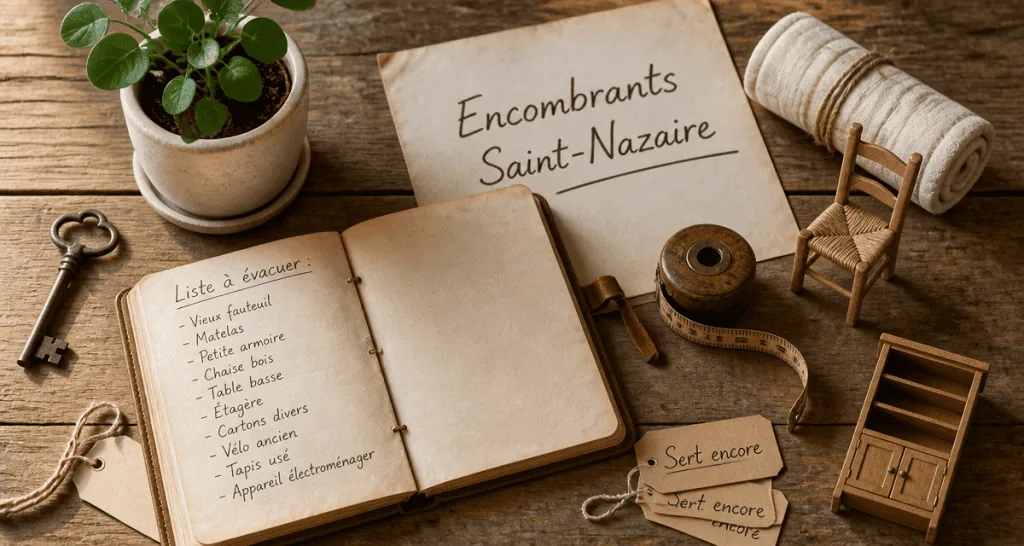 Encombrants
Saint-Nazaire
Liste à évacuer :
- Vieux fauteuil
- Matelas
- Petite armoire
- Chaise bois
- Table basse
- Étagère
- Cartons divers
- Vélo ancien
- Tapis usé
- Appareil électroménager
Sert encore
Sert encore
encore